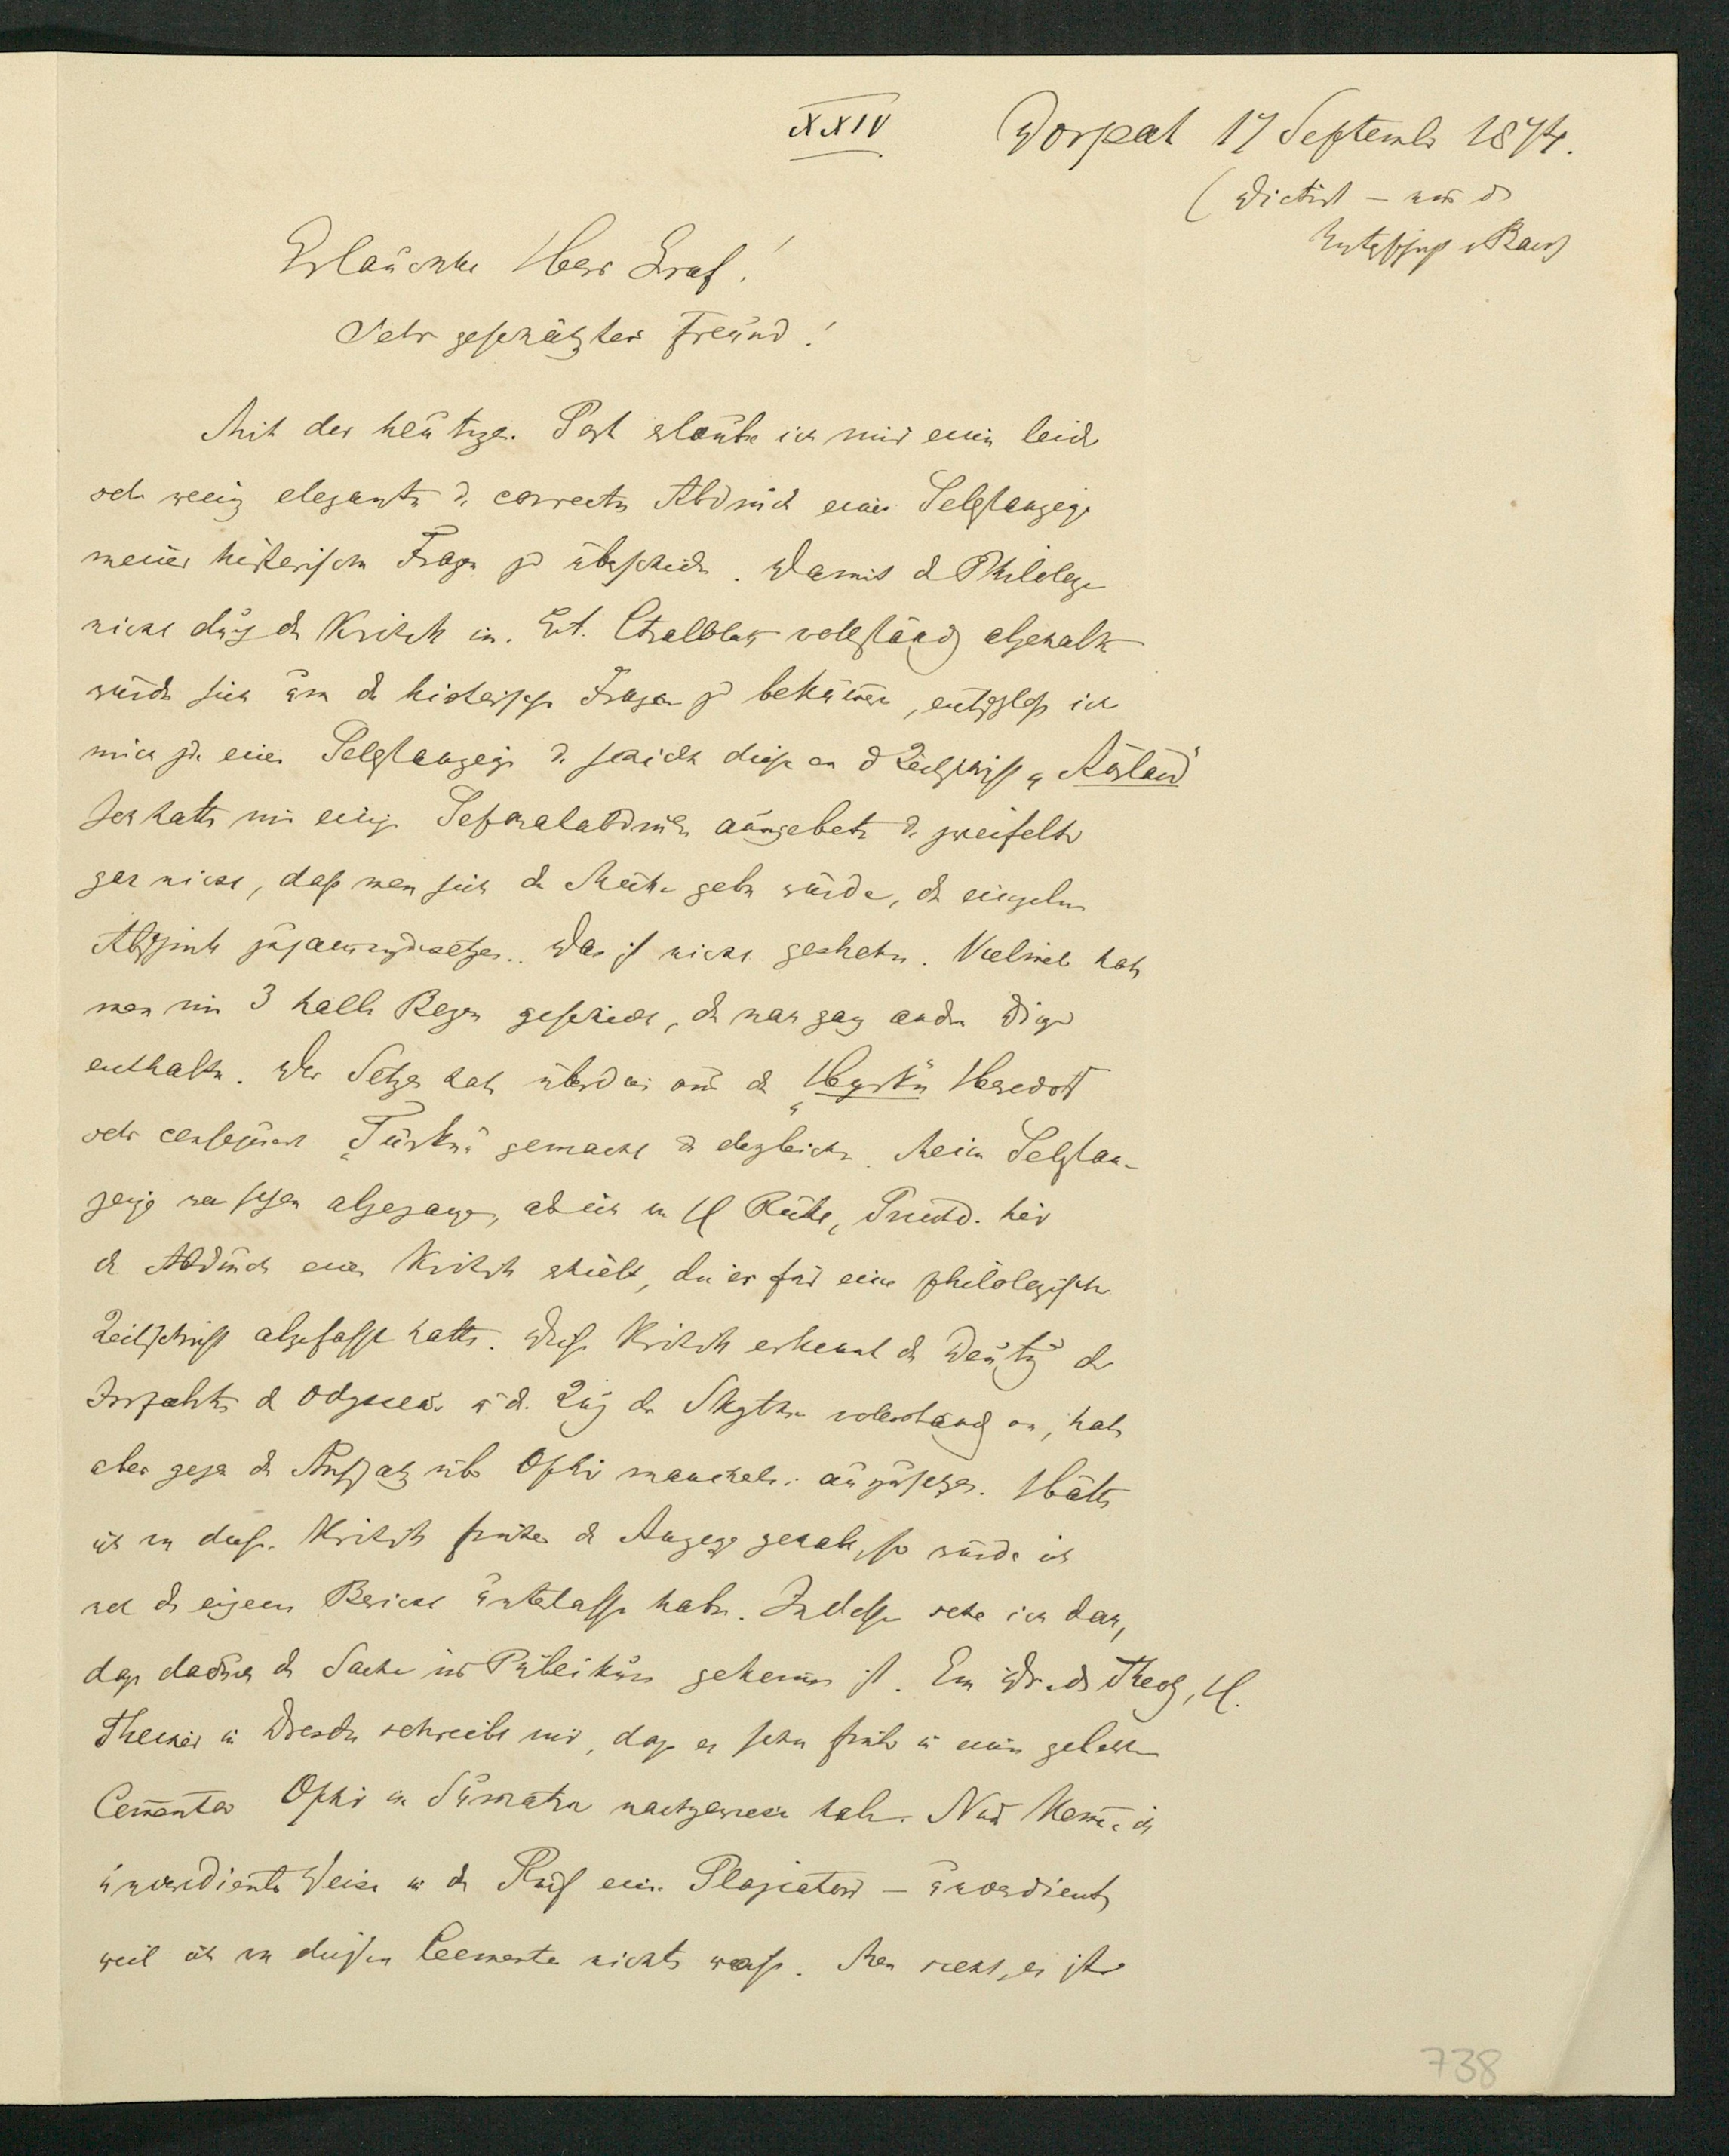 XXIV
Dorpat 17 September 1874.
(Dictirt – nur d
Unterschrift v Baer)
Erlauchter Herr Graf!
Sehr geschätzter Freund!
Mit der heutigen Post erlaube ich mir einen leider
sehr wenig eleganten u. correcten Abdruck einer Selbstanzeige
meiner historischen Fragen zu überschicken. Damit d Philologen
nicht durch die Kritik im Lit. Ctralblatt vollständig abgehalten
würden sich um die historischen Fragen zu bekümmern, entschloss ich
mich zu einer Selbstanzeige u. schickte diese an d Zeitschrift „Ausland"
Ich hatte mir einige Separatabdrücke ausgebeten u. zweifelte
gar nicht, dass man sich die Mühe geben würde, die einzelnen
Abschnitte zusammenzusetzen. Das ist nicht geschehen. Vielmehr hat
man mir 3 halbe Bogen geschickt, die noch ganz andere Dinge
enthalten. Der Setzer hat überdies aus den Hyrken Herodots
sehr consequent „Türken" gemacht u dergleichen. Meine Selbstan-
zeige war schon abgegangen, als ich von H Rühl, Privatd. hier
den Abdruck einer Kritik erhielt, die er für eine philologische
Zeitschrift abgefasst hatte. Diese Kritik erkennt die Deutung der
Irrfahrten d Odysseus u d. Zug der Skythen vollständig an, hat
aber gegen den Aufsatz über Ophir mancherlei auszusetzen. Hätte
ich von dieser Kritik früher die Anzeige gehabt, so würde ich
wol den eigenen Bericht unterlassen haben. Indessen sehe ich doch,
dass dadurch die Sache ins Publikum gekommen ist. Ein Dr. der Theolog, H.
Thenius in Dresden schreibt mir, dass er schon früher in einem gelehrten
Comentar Ophir in Sumatra nachgewiesen habe. Nun komme ich
unverdienter Weise in den Ruf eines Plagiators – unverdient,
weil ich von diesem Comentar nichts weiss. Man sieht, es ist
738